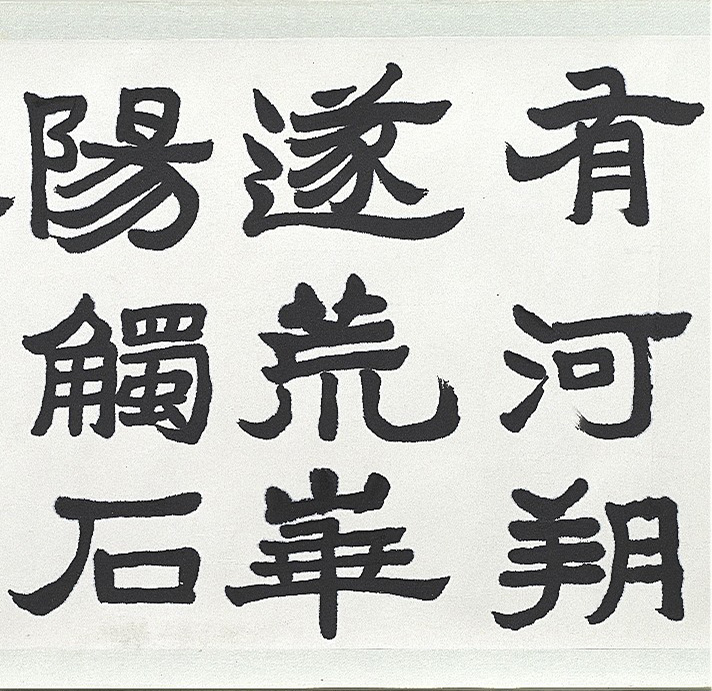 有河朔
遂荒崋
陽觸石